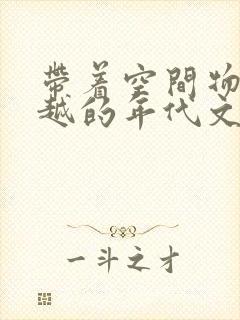 带着空間物
越的年代文
一斗之才